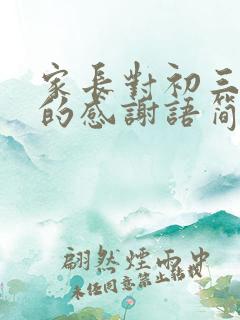 家長對初三
的感謝語簡
翩然煙雨中
未經同意禁止轉載